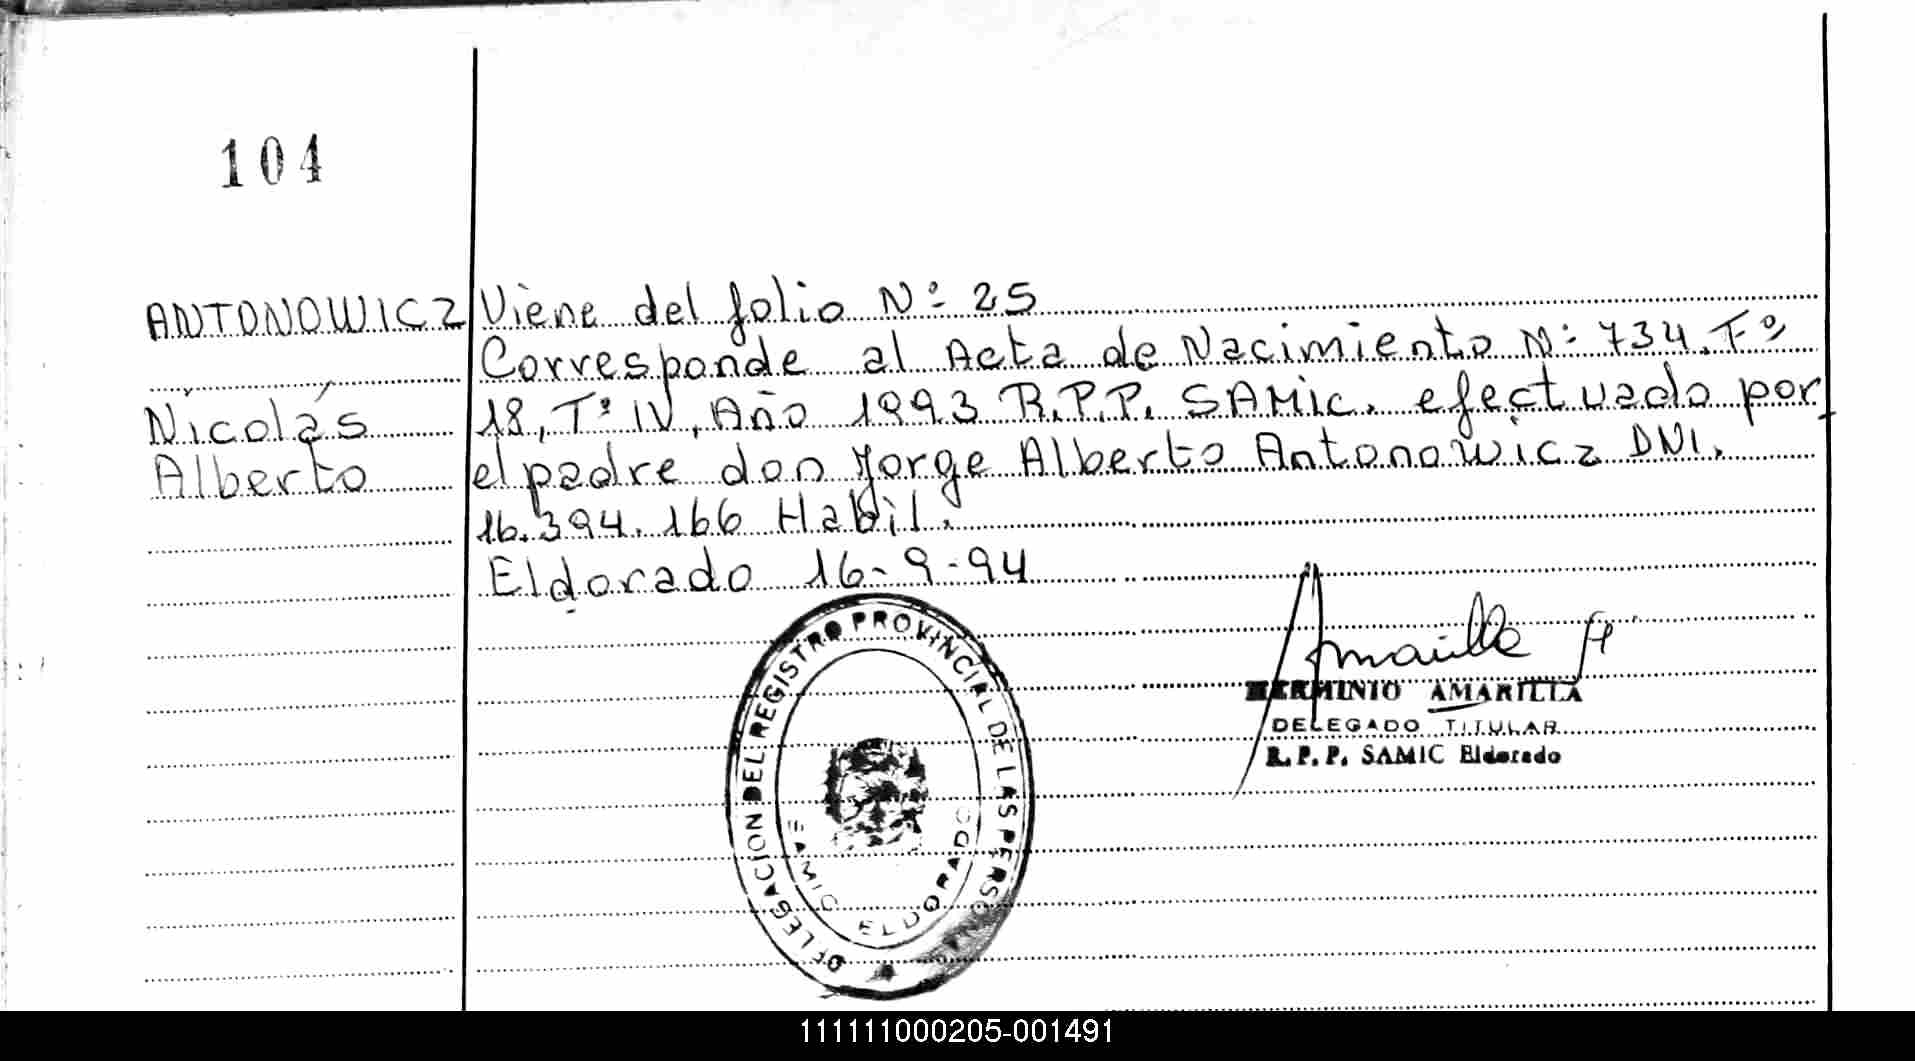 104
ANTONOWICZ
Nicolás
Alberto
Viene del folio Nº 25
Corresponde al Acta de Nacimiento Nº 734. Fº
18, Tº IV, Año 1993 R.P.P. SAMIC. efectuado por
el padre don Jorge Alberto Antonowicz DNI.
16.394.166 Habil.
Eldorado 16-9-94
DELEGACION DEL REGISTRO PROVINCIAL DE LAS PERSONAS
SAMIC ELDORADO
Amarilla H
HERMINIO AMARILLA
DELEGADO TITULAR
R.P.P. SAMIC Eldorado
111111000205-001491